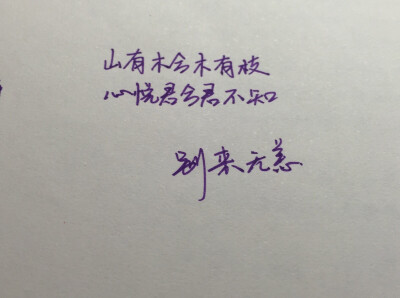 山有木兮木有枝
心悦君兮君不知
别来无恙